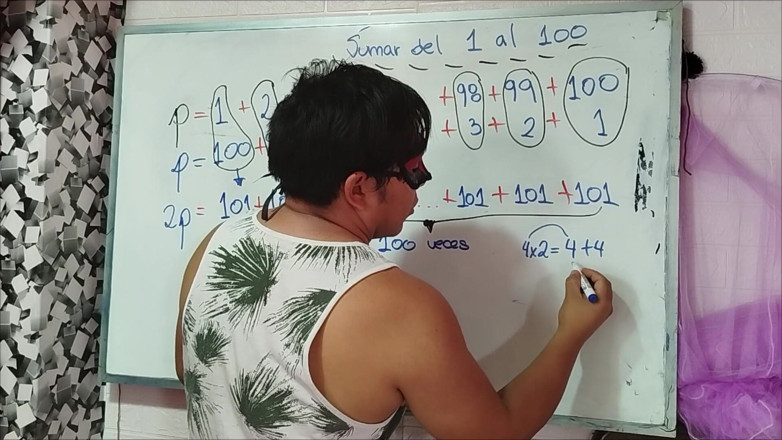 Sumar del 1 al 100
p = 1 + 2 + 98 + 99 + 100
p = 100 + + 3 + 2 + 1
2p = 101 + ... + 101 + 101 + 101
100 veces
4x2 = 4 + 4